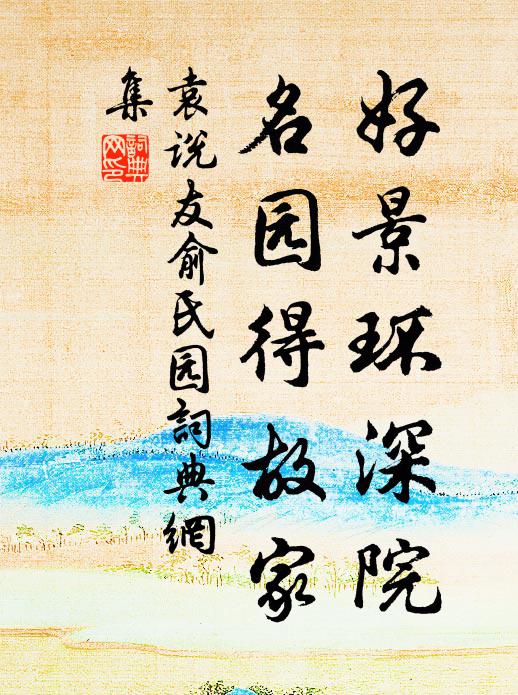 好景环深院
名园得故家
袁说友俞氏园詞典網
集
詞典网印